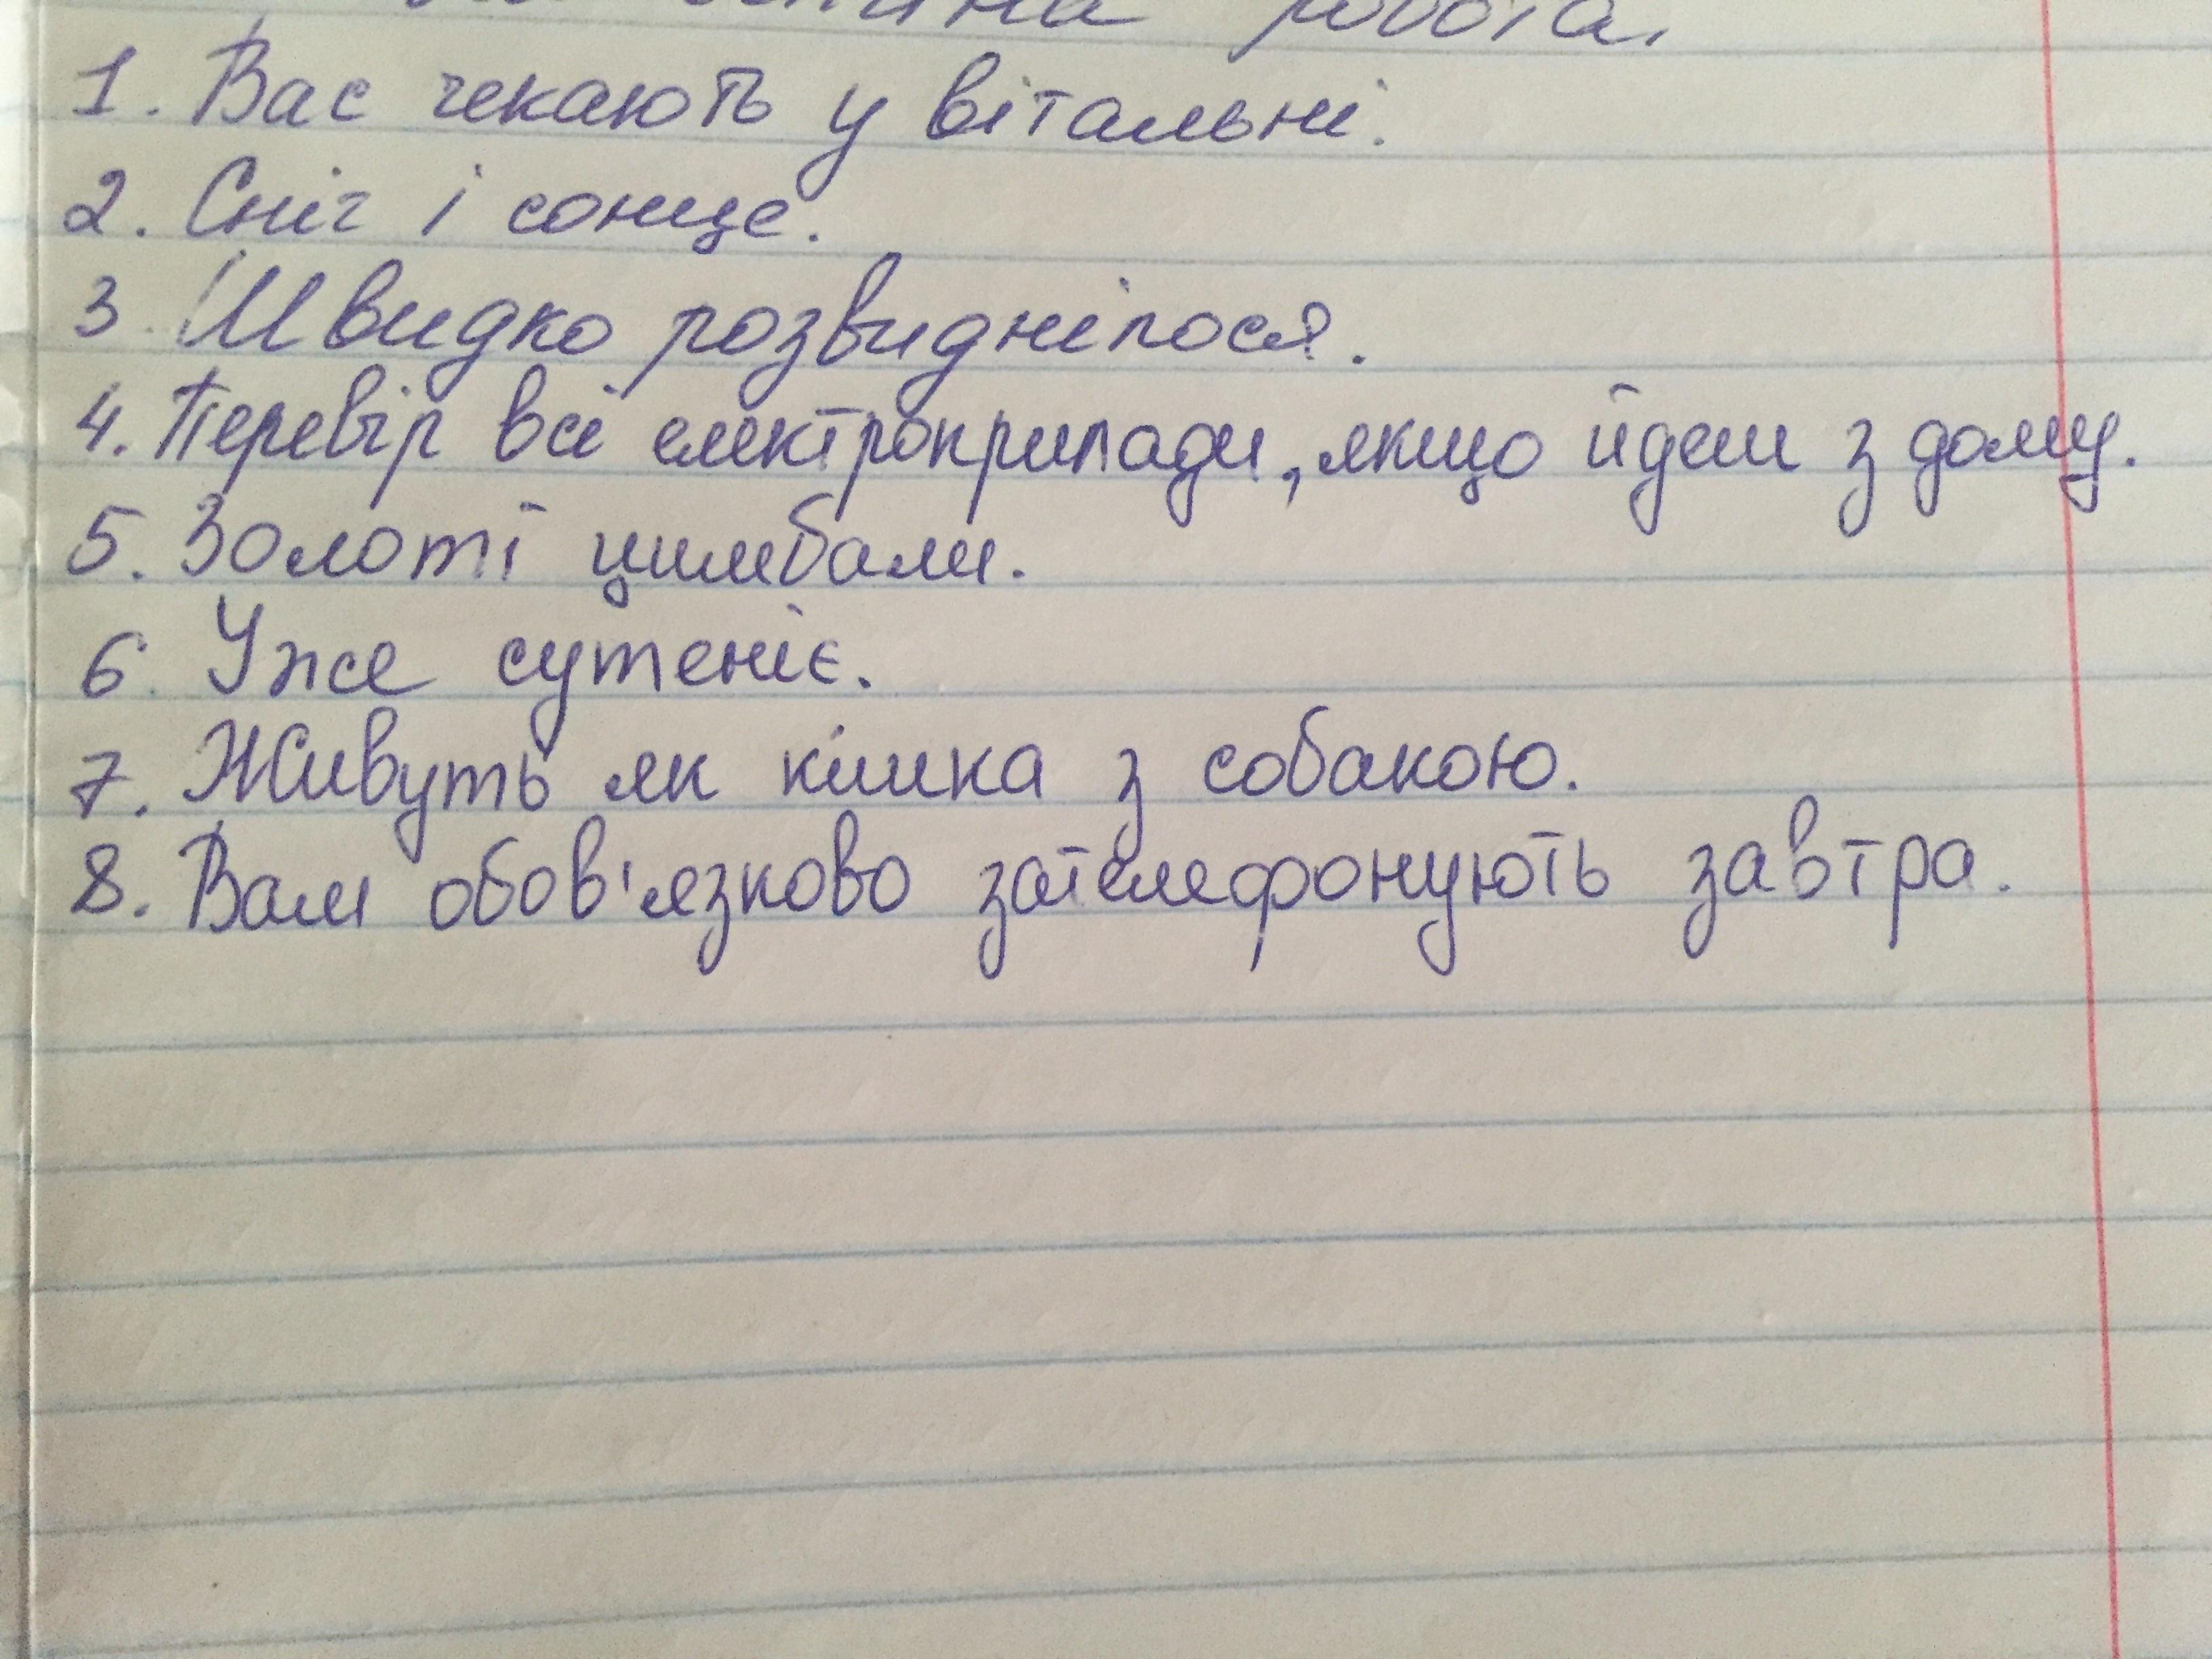 робота.
1. Вас чекають у вітальні.
2. Сніг і сонце.
3. Швидко розвиднілося.
4. Перевір всі електроприлади, якщо йдеш з дому.
5. Золоті цимбали.
6. Уже сутеніє.
7. Живуть як кішка з собакою.
8. Вам обов'язково зателефонують завтра.